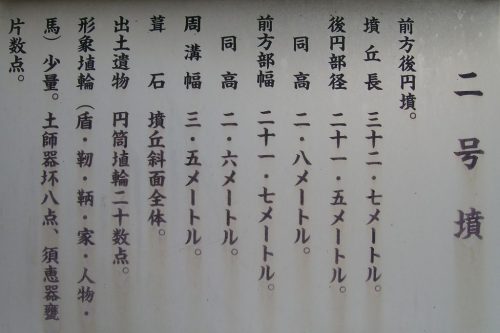 二号墳
前方後円墳。
墳丘長 三十二・七メートル。
後円部径 二十一・五メートル。
同高 二・八メートル。
前方部幅 二十一・七メートル。
同高 二・六メートル。
周溝幅 三・五メートル。
葺石 墳丘斜面全体。
出土遺物 円筒埴輪二十数点。
形象埴輪（盾・靭・鞆・家・人物・
馬）少量。土師器坏八点、須恵器甕
片数点。